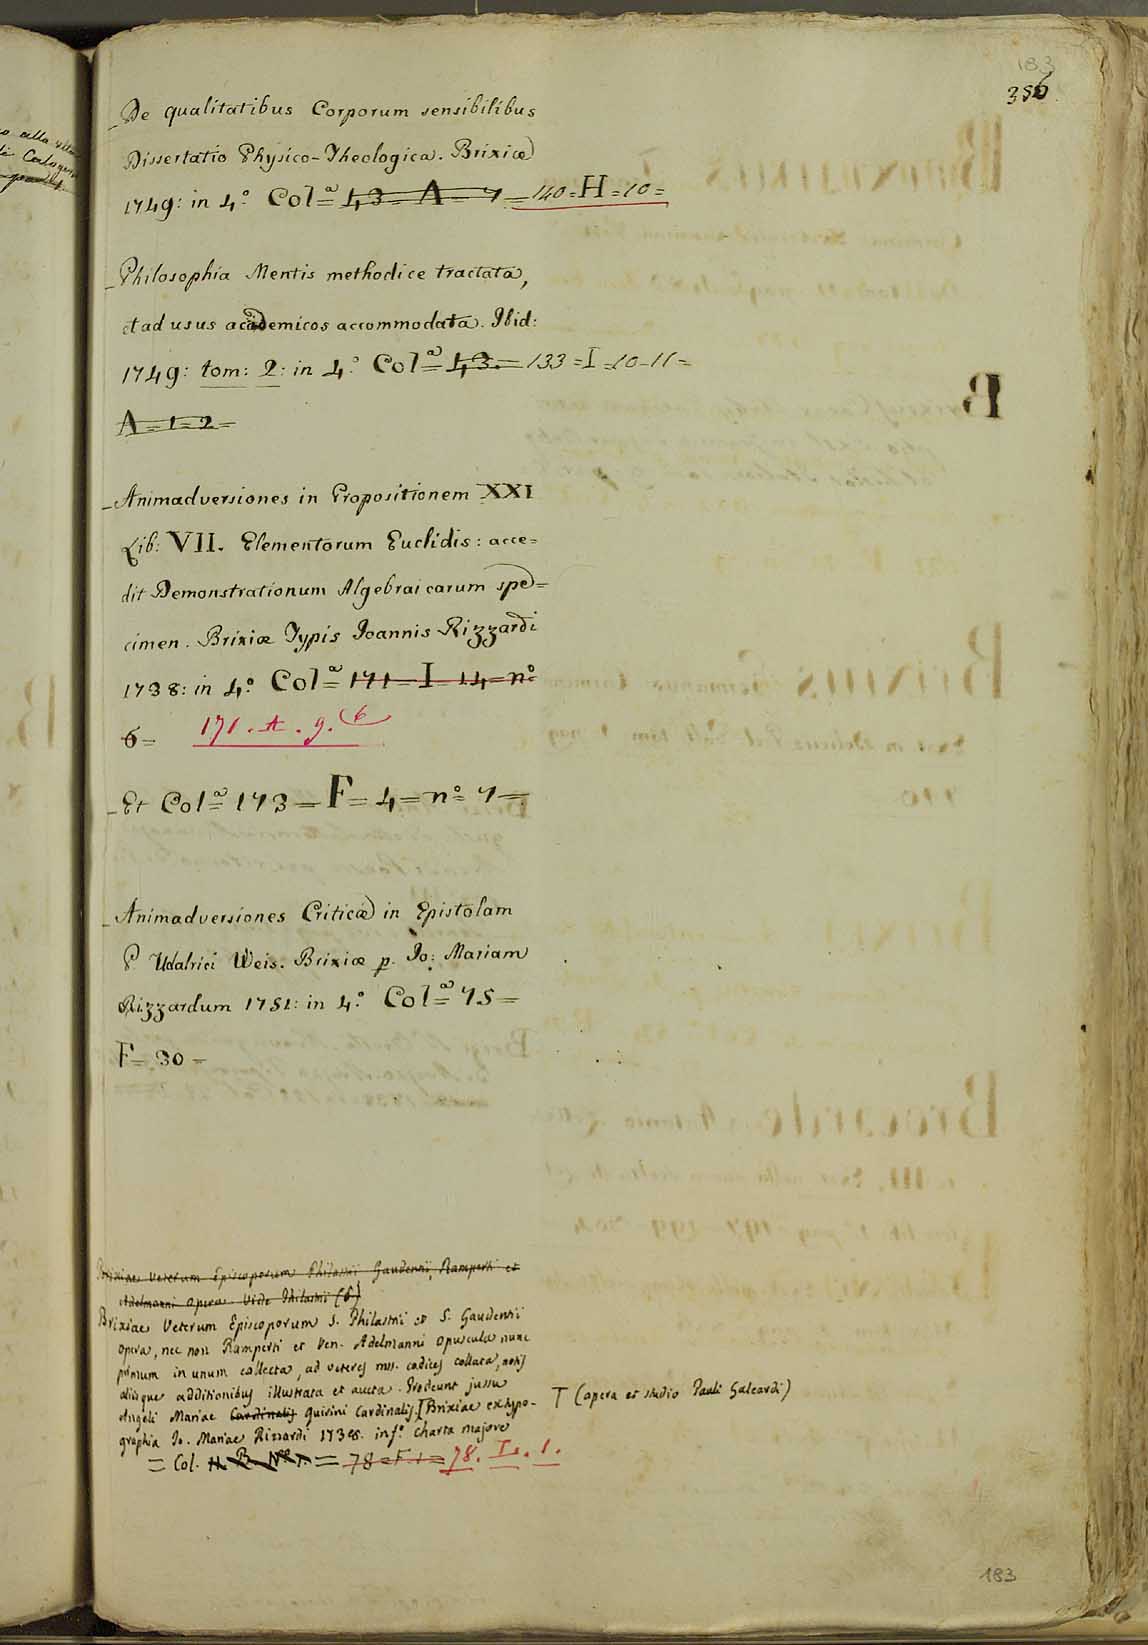 183
356.
De qualitatibus Corporum sensibilibus
Dissertatio Physico-Theologica. Brixiæ
1749: in 4.° Col.ª 43 = A = 7 = 140 = H = 10 =
Philosophia Mentis methodice tractata,
et ad usus academicos accommodata. Ibid:
1749: tom: 2: in 4.° Col.ª 43. = 133 = I = 10-11 =
A = 1 = 2 =
Animadversiones in Propositionem XXI
Lib: VII. Elementorum Euclidis: acce=
dit Demonstrationum Algebraicarum spe=
cimen. Brixiæ Typis Joannis Rizzardi
1738: in 4.° Col.ª 171 = I = 14 = n.°
6 = 171. A. 9. (6
Et Col.ª 173 = F = 4 = n.° 7 =
Animadversiones Criticæ in Epistolam
P. Udalrici Weis. Brixiæ p. Jo: Mariam
Rizzardum 1751: in 4.° Col.ª 75 =
F = 30 =
Brixiae Veterum Episcoporum Philastrii Gaudentii, Ramperti et
Adelmanni Opera. Vide Philastrii (S.)
Brixiae Veterum Episcoporum S. Philastrii et S. Gaudentii
opera, nec non Ramperti et Ven. Adelmanni opuscula nunc
primum in unum collecta, ad veteres mss. codices collata, notis
aliisque additionibus illustrata et aucta. Prodeunt jussu
Angeli Mariae Cardinalis Quirini Cardinalis. [Brixiae ex typo- T (opera et studio Pauli Galeardi)
graphia Jo. Mariae Rizzardi 1738. in f.° charta majore
= Col. = 78 = F. 1 = 78. I. 1.
183